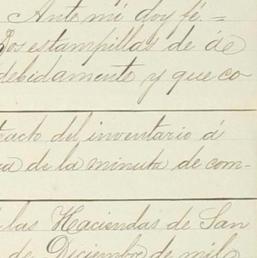 Ante mi doy fé.=
Dos estampillas de á de
debidamente y que co
tracto del inventario á
de la minuta de com-
las Haciendas de San
de Diciembre de mil